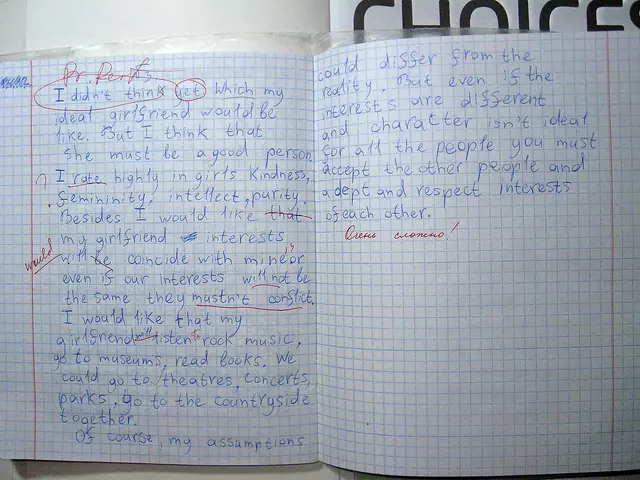 CHOICES
Pr. Perf.
I didn't think yet which my
ideal girlfriend would be
like. But I think that
she must be a good person
I rate highly in girls kindness,
femininity, intellect, purity.
Besides I would like that
my girlfriend interests
would
will be coincide with mine or
even if our interests will not be
the same they mustn't conflict.
I would like that my
girlfriend will listen to rock music,
go to museums, read books. We
could go to theatres, concerts,
parks, go to the countryside
together.
Of course, my assumptions
could differ from the
reality. But even if the
interests are different
and charatter isn't ideal
for all the people you must
accept the other people and
adept and respect interests
of each other.
Очень сложно!